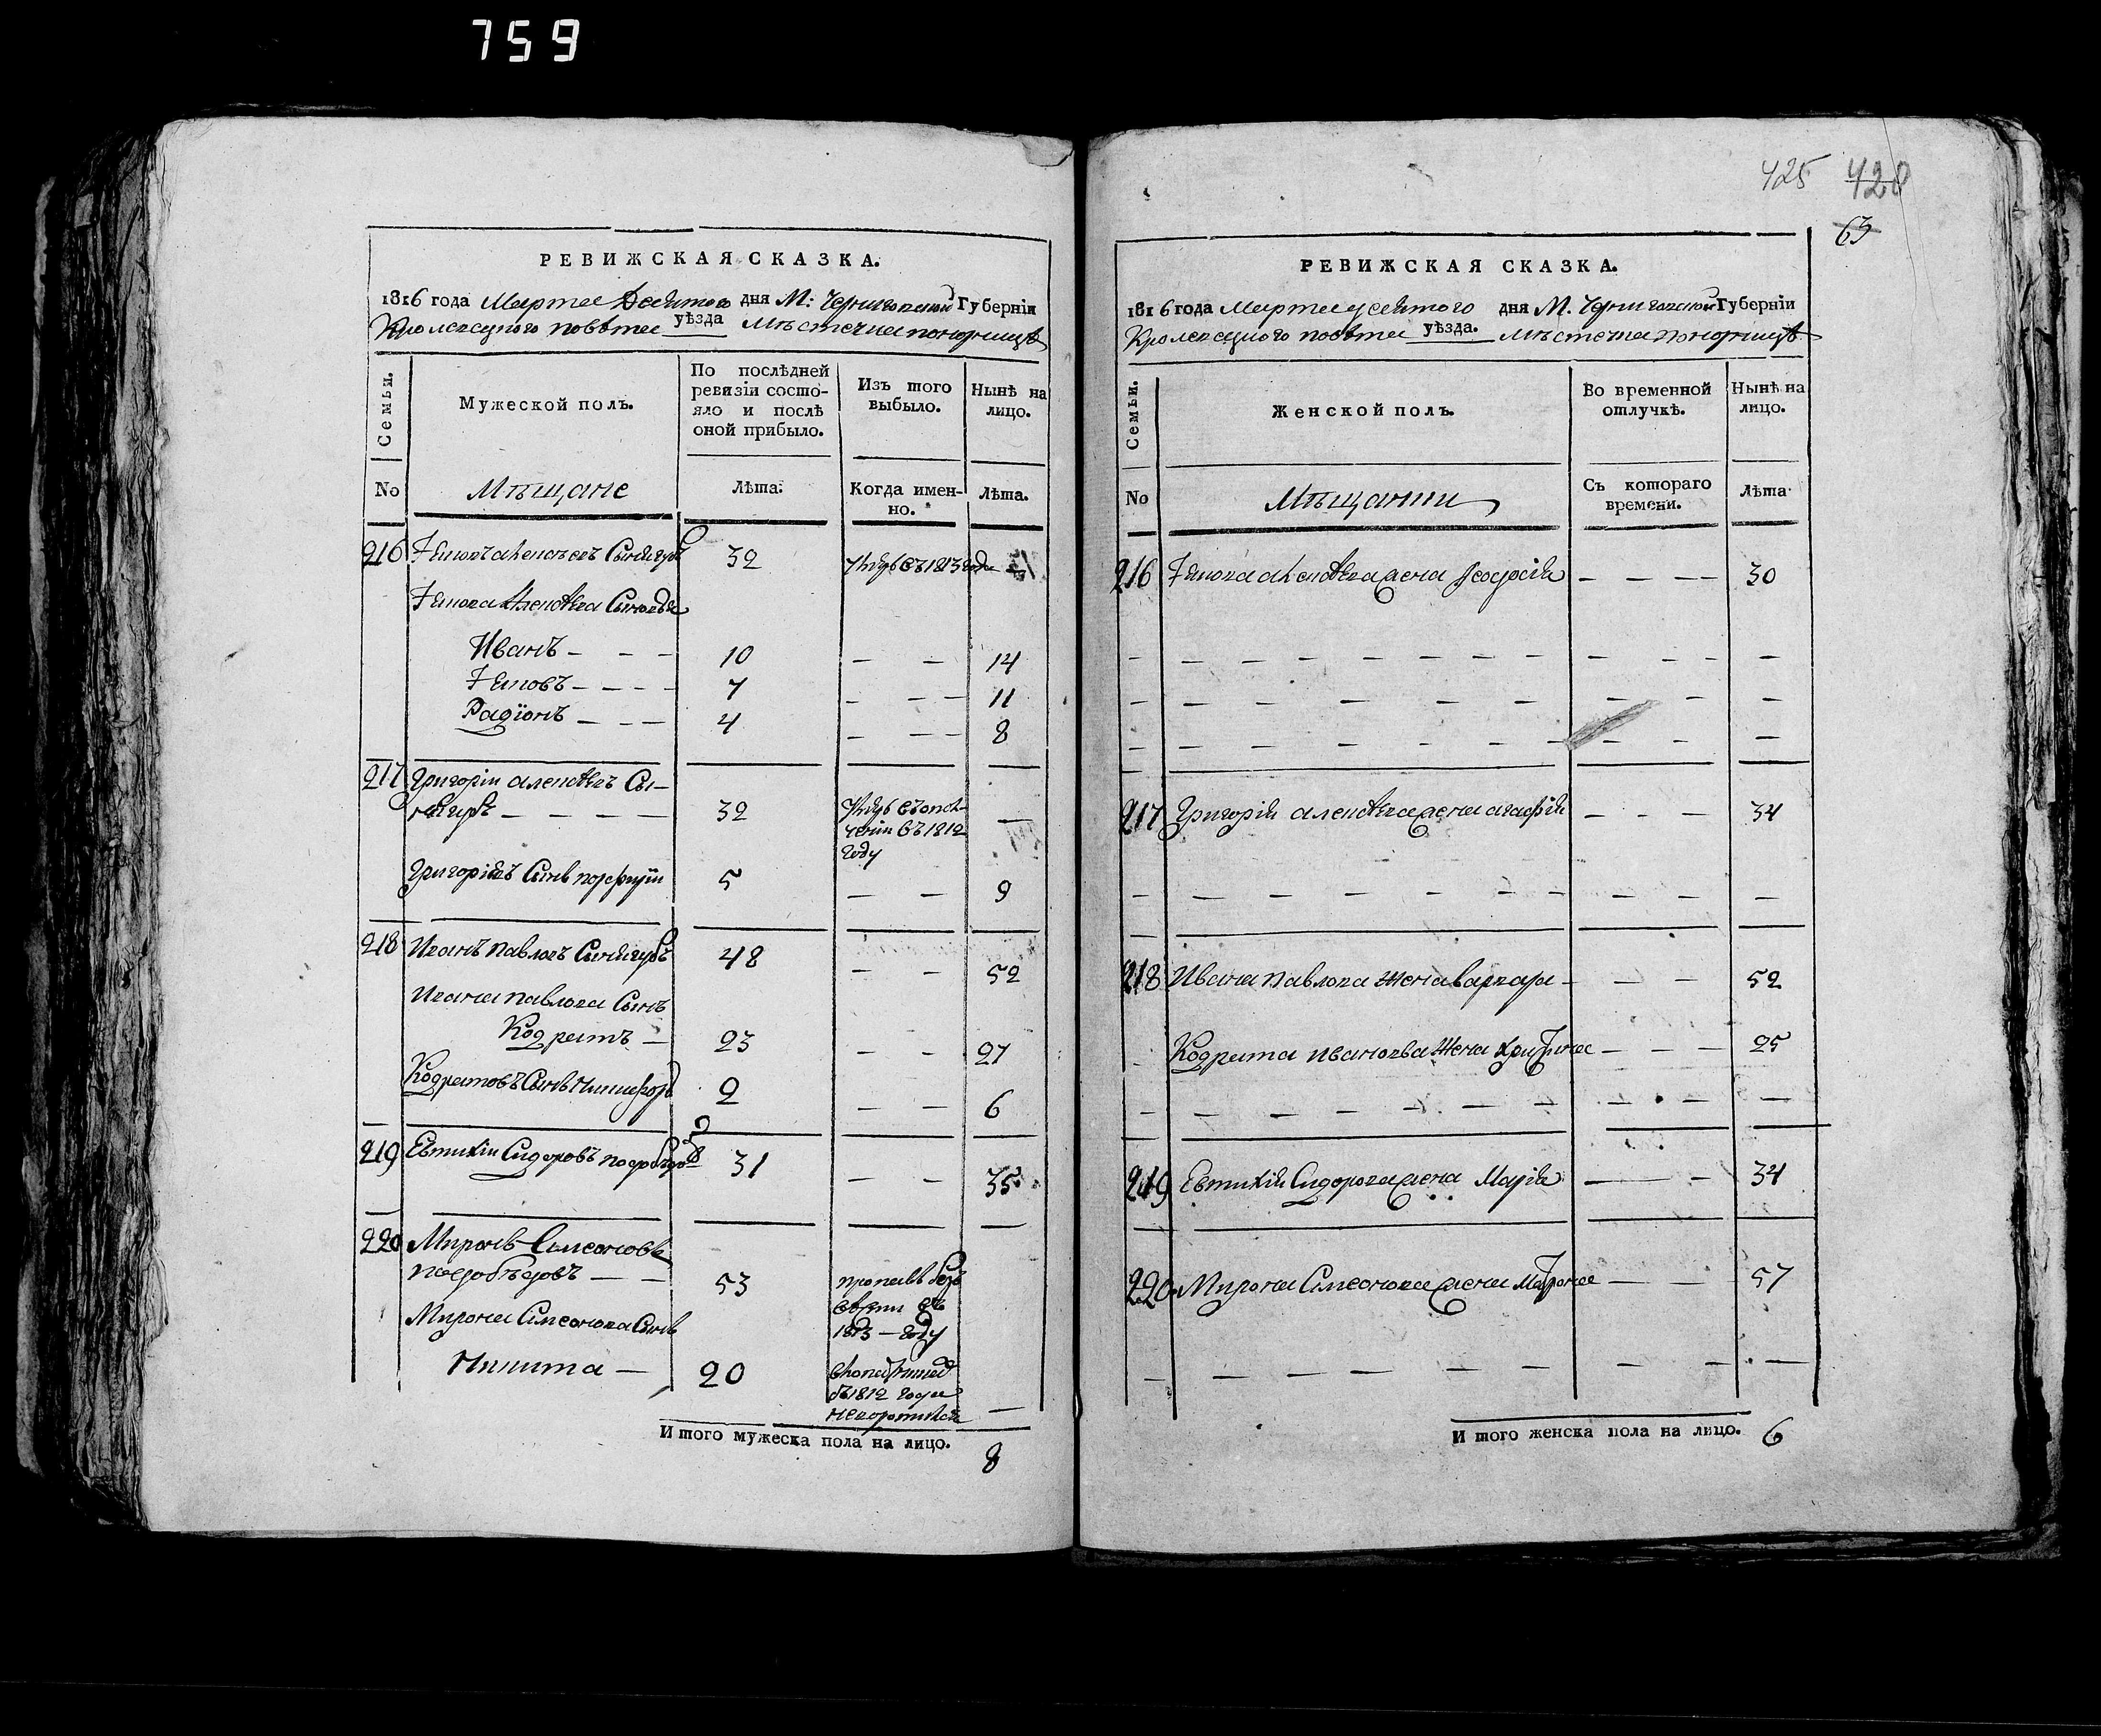 759
РЕВИЖСКАЯ СКАЗКА.
1816 года Марта Десятого дня М: Черниговской Губерніи
Кролевецкого повѣта уѣзда Мѣстечка понорницѣ
Семьи.
Мужеской полъ.
По послѣдней ревизіи состо-
яло и послѣ
оной прибыло.
Изъ того
выбыло.
Нынѣ на
лицо.
No
Мѣщане
Лѣта.
Когда имен-
но.
Лѣта.
216 алексѣевъ Снѣгуръ 32 въ 1813 года —
алексѣева Сыновья
Иванъ — — — 10 — — 14
7 — — — 11
Радіонъ — — — 4 — — — 8
217 Григорій алексѣевъ Сн-
ѣгуръ — — — — 32 —
въ 1812
году
Григоріевъ Сынъ порфирій 5 — — 9
218 Иванъ павловъ Снѣгуръ 48 — — 52
Ивана павлова Сынъ
Кодратъ — 23 — — 27
Кодратовъ Сынъ Никифоръ 2 — — 6
219 Евтихій Сидоровъ 31 — — 35
220 Миронъ Симеоновъ
— — 53 пропалъ безъ
вѣсти въ
1813 — году
Мирона Симеонова Сынъ
Никита — 20
въ 1812 года
—
Итого мужеска пола на лицо.
8
425 428
63
РЕВИЖСКАЯ СКАЗКА.
1816 года Марта десятого дня М. Черниговской Губерніи
Кролевецкого повѣта уѣзда. Мѣстечка понорницѣ
Семьи.
Женской полъ.
Во временной
отлучкѣ.
Нынѣ на
лицо.
No
Мѣщанки
Съ котораго
времени.
Лѣта
216 алексѣева жена Феодосія — — — — 30
217 Григорія алексѣева жена агафія — — — 34
218 Ивана павлова жена варвара — — — 52
Кодрата иванова жена Христина — — — 25
219 Евтихія Сидорова жена Марія — — — 34
220 Мирона Симеонова жена Матрона — — 57
Итого женска пола на лицо. 6